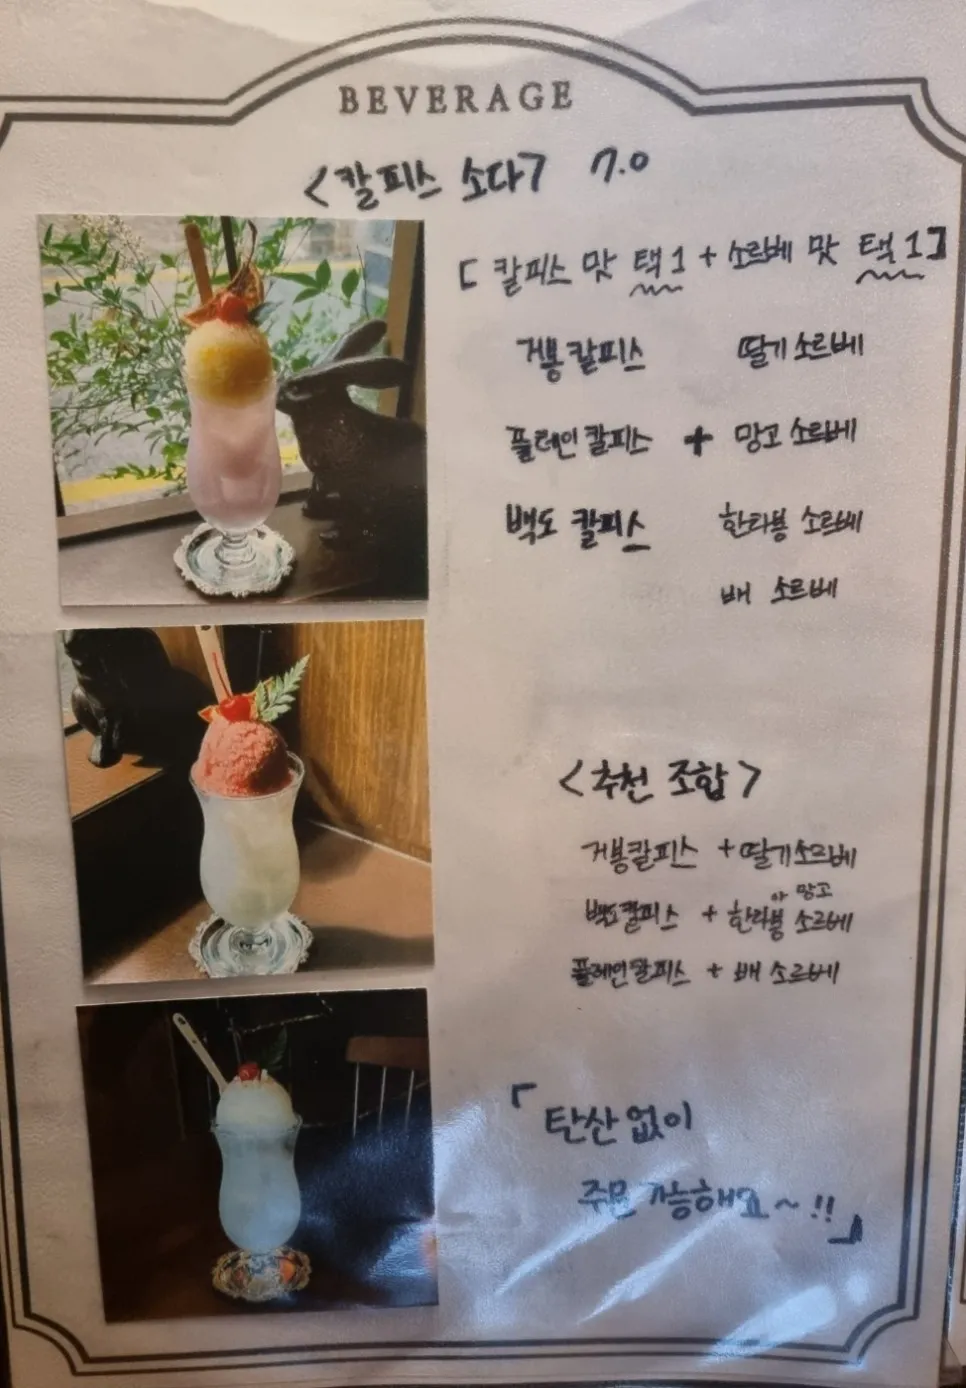 BEVERAGE
<칼피스 소다> 7.0
[칼피스 맛 택1 + 소르베 맛 택1]
거봉칼피스 딸기소르베
플레인칼피스 + 망고소르베
백도 칼피스 한라봉 소르베
배 소르베
<추천 조합>
거봉칼피스 + 딸기소르베
or 망고
백도칼피스 + 한라봉 소르베
플레인칼피스 + 배 소르베
「탄산없이
주문가능해요~!!」